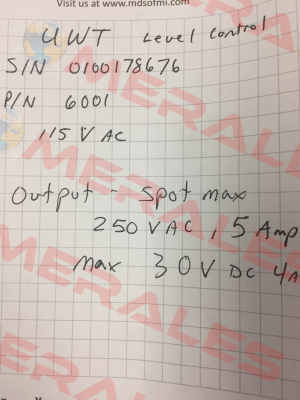 Visit us at www.mdsofmi.com
UWT Level Control
S/N 0100178676
P/N 6001
115 V AC
Output - Spot max
250 VAC, 5 Amp
max 30V DC 4A
MERALES
MERALES
MERALES
MERALES